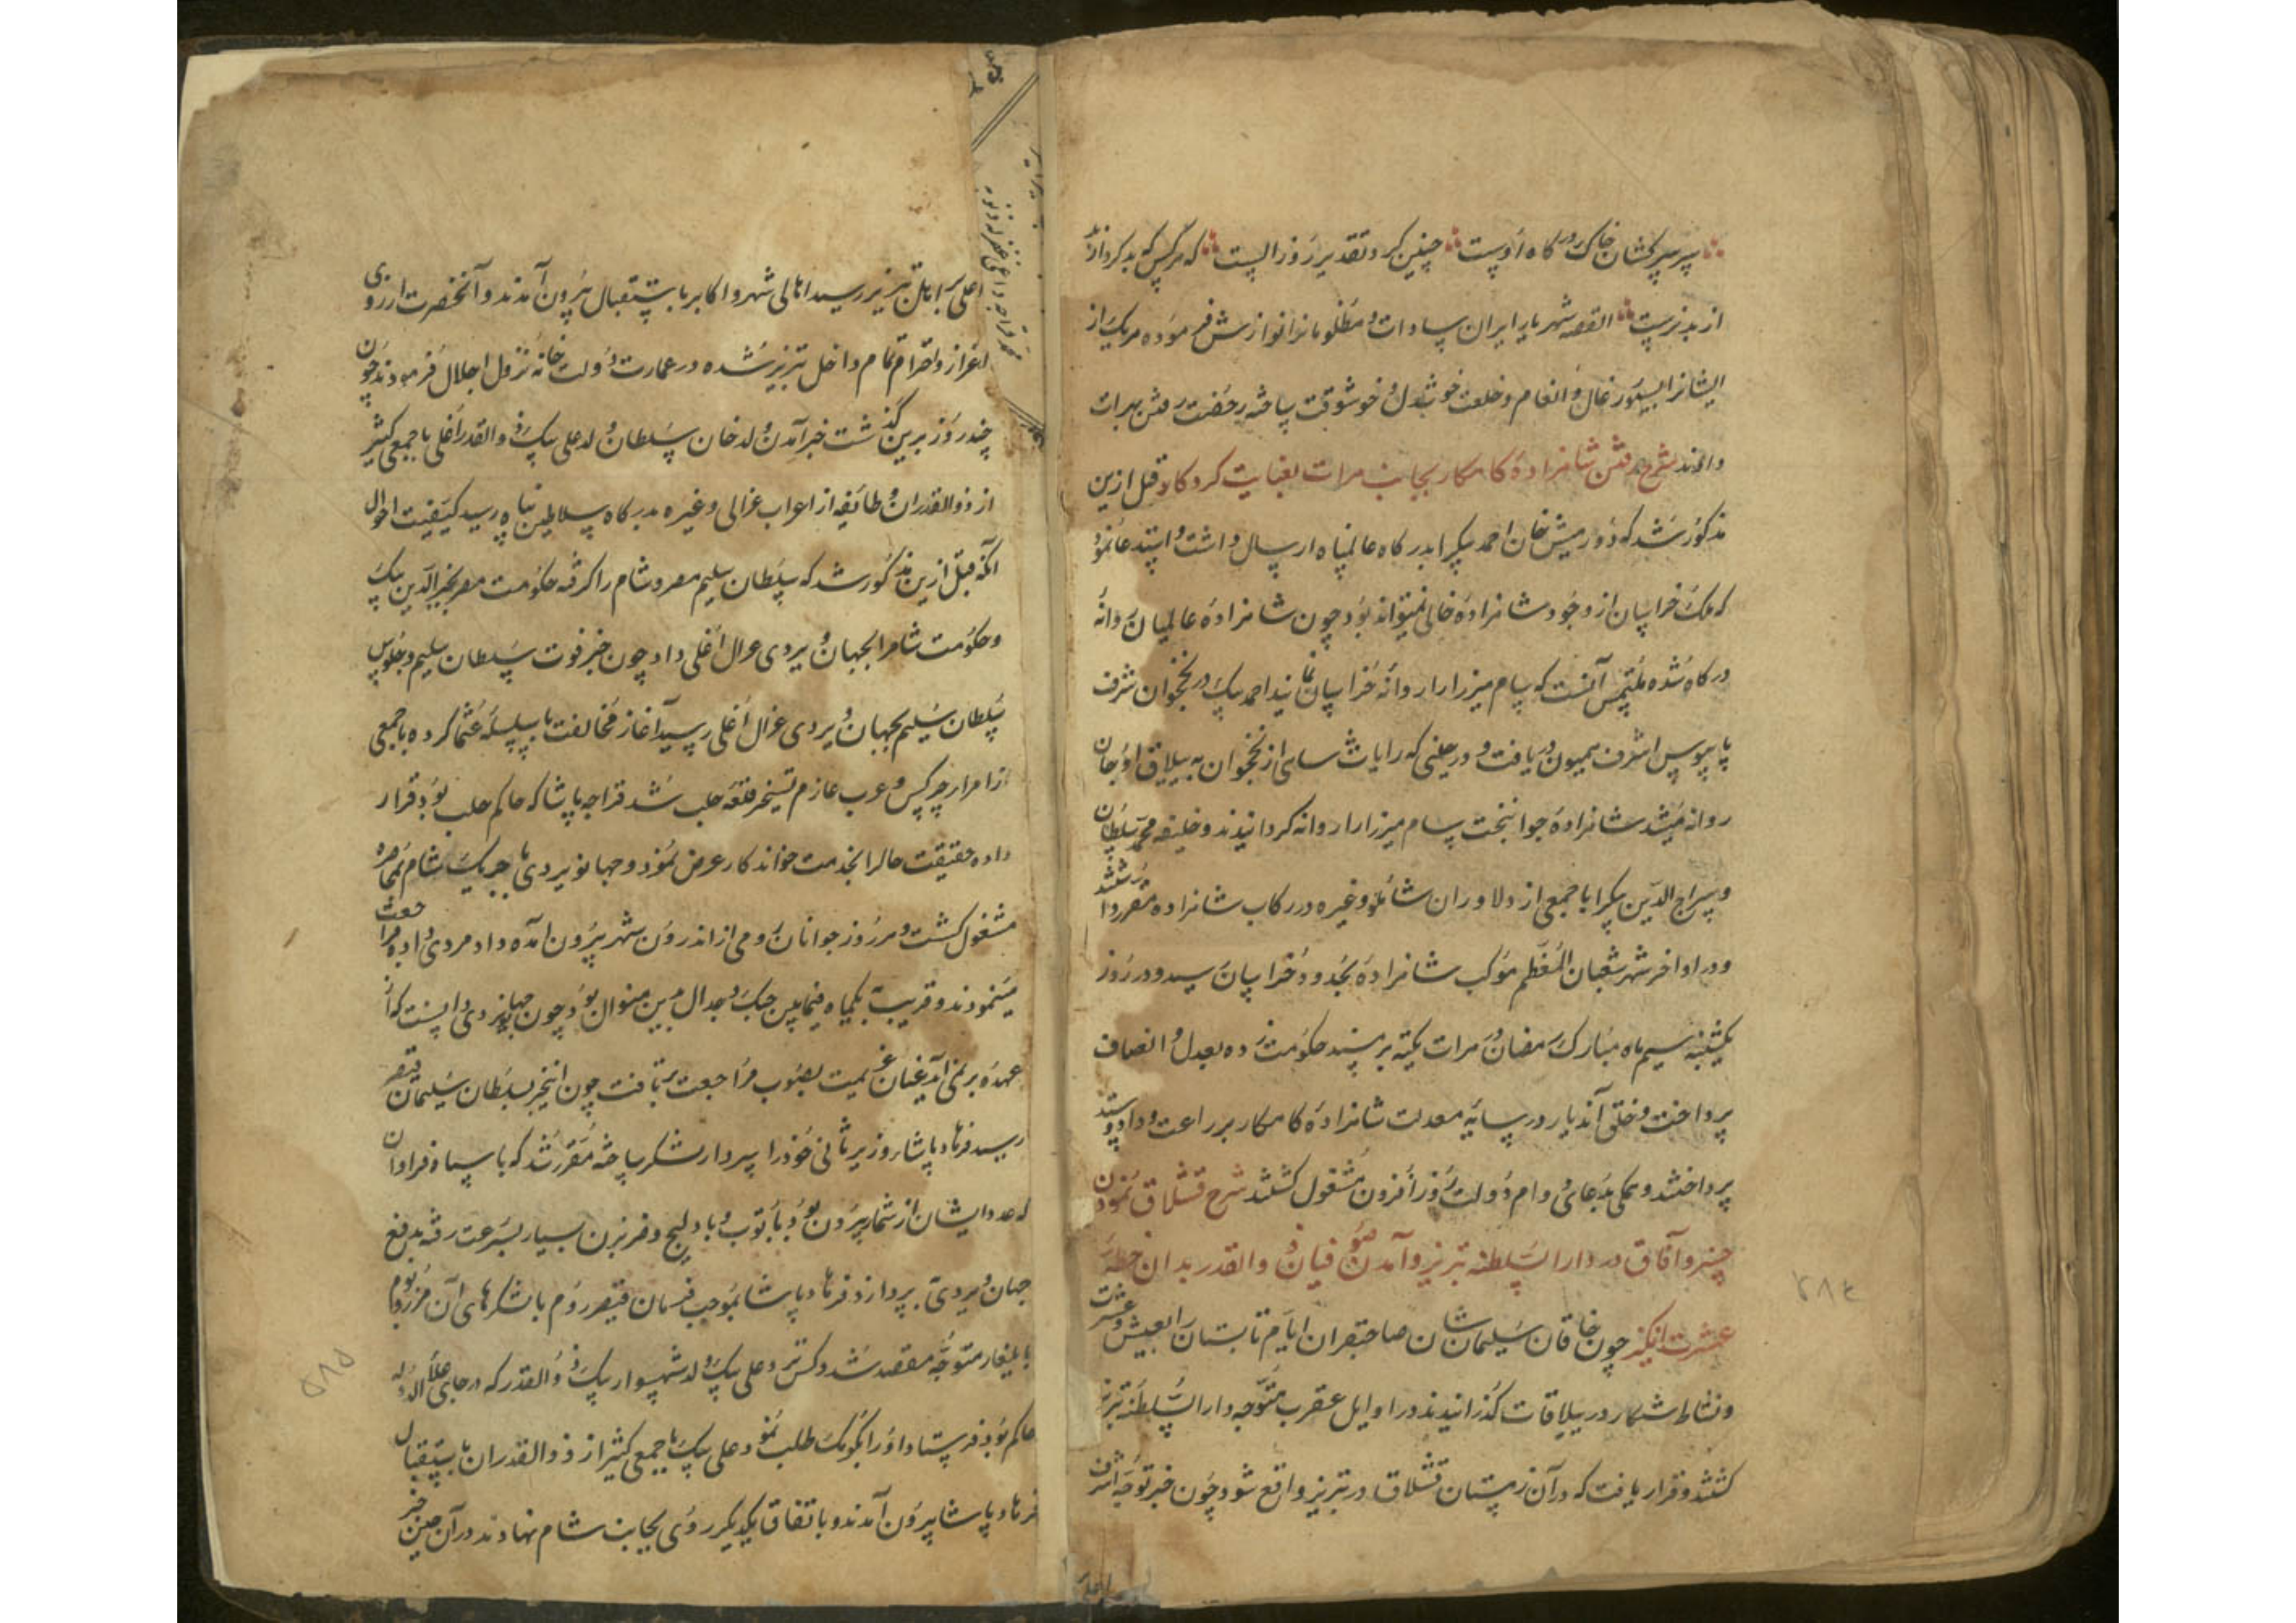 سر سرکشان خاک درگاه اوست چنین کرد تقدیر روز الست که هرکس که بد کرد
از بد نرست القصه شهریار ایران سادات و مظلومانرا نوازش فرموده هریک از
ایشانرا بسیورغال و انعام و خلعت خوشدل و خوشوقت ساخته رخصت رفتن بهرات
دادند شرح رفتن شاهزاده کامکار بجانب هرات بعنایت کردکار قبل ازین
مذکور شد که دورمیش خان احمد بیکرا بدرگاه عالمپناه ارسال داشت و استدعا نمود
که ملک خراسان از وجود شاهزاده خالی نمیتواند بود چون شاهزاده عالمیان روانه
درگاه شده ملتمس آنست که سام میرزا را روانه خراسان نمایند احمد بیک در نخجوان شرف
پابوس اشرف همیون دریافت و در حینی که رایات از نخجوان به ییلاق اوجان
روانه میشد شاهزاده جوانبخت سام میرزا را روانه کردانیدند و خلیفه محمد سلطان
و سراج الدین بیکرا با جمعی از دلاوران شاملو و غیره در رکاب شاهزاده مقرر داشتند
و در اواخر شهر شعبان المعظم موکب شاهزاده بحدود خراسان رسید و در روز
یکشنبه سیم ماه مبارک رمضان در هرات تکیه بر مسند حکومت زده بعدل و انصاف
پرداخت و خلق آندیار در سایه معدلت شاهزاده کامکار بزراعت و داد و ستد
پرداختند و همکی بدعای دوام دولت روز افزون مشغول کشتند شرح قشلاق نمودن
خسرو آفاق در دار السلطنه تبریز و آمدن صوفیان ذو القدر بدان خطه
عشرت انکیز چون خاقان سلیمان شان صاحبقران ایام تابستان را بعیش و عشرت
و نشاط شکار در ییلاقات کذرانیدند در اوایل عقرب متوجه دار السلطنه تبریز
کشتند و قرار یافت که در آن زمستان قشلاق در تبریز واقع شود چون خبر توجه اشرف
اعلی
اعلی باهل تبریز رسید اهالی شهر و اکابر باستقبال بیرون آمدند و آنحضرت از روی
اعزاز و احترام تمام داخل تبریز شده در عمارت دولت خانه نزول اجلال فرمودند چون
چند روز برین کذشت خبر آمدن ولد خان سلطان ولد علی بیک ذو القدر اغلی با جمعی کثیر
از ذو القدران و طائفه از اعراب غزالی و غیره بدرگاه سلاطین پناه رسید کیفیت احوال
آنکه قبل ازین مذکور شد که سلطان سلیم مصر و شام را کرفته حکومت مصر بخیر الدین بیک
و حکومت شام را بجهان ویردی عزال اغلی داد چون خبر فوت سلطان سلیم و جلوس
سلطان سلیم بجهان ویردی غزال اغلی رسید آغاز مخالفت با سلسله عثما کرده با جمعی
از امراء چرکس و عرب عازم تسخیر قلعه حلب شد قراجه پاشا که حاکم حلب بود قرار
داده حقیقت حالرا بخدمت خواندکار عرض نمود و جهانویردی با چریک شام بمحاصره
مشغول کشت و هر روز جوانان رومی از اندرون شهر بیرون آمده داد مردی داده مراجعت
مینمودند و قریب بیکماه فیمابین جنک و جدال بدین منوال بود چون جهانویردی دانست که از
عهده بر نمی آید عنان عزیمت بصوب مراجعت برتافت چون اینخبر بسلطان سلیمان قیصر
رسید فرهاد پاشا وزیر ثانی خود را سردار لشکر ساخته مقرر شد که با سپاه فراوان
که عدد ایشان از شمار بیرون بود با توب و بادلیج و ضربزن بسیار بسرعت رفته بدفع
جهان ویردی پردازد فرهاد پاشا بموجب فرمان قیصر روم با لشکرهای آن مرز و بوم
بایلغار متوجه مقصد شد و کس نزد علی بیک ولد شهسوار بیک ذو القدر که در جای علاء الدوله
حاکم بود فرستاد و او را بکومک طلب نمود علی بیک با جمعی کثیر از ذو القدران باستقبال
فرهاد پاشا بیرون آمدند و باتفاق یکدیکر روی بجانب شام نهادند در آن حین خبر